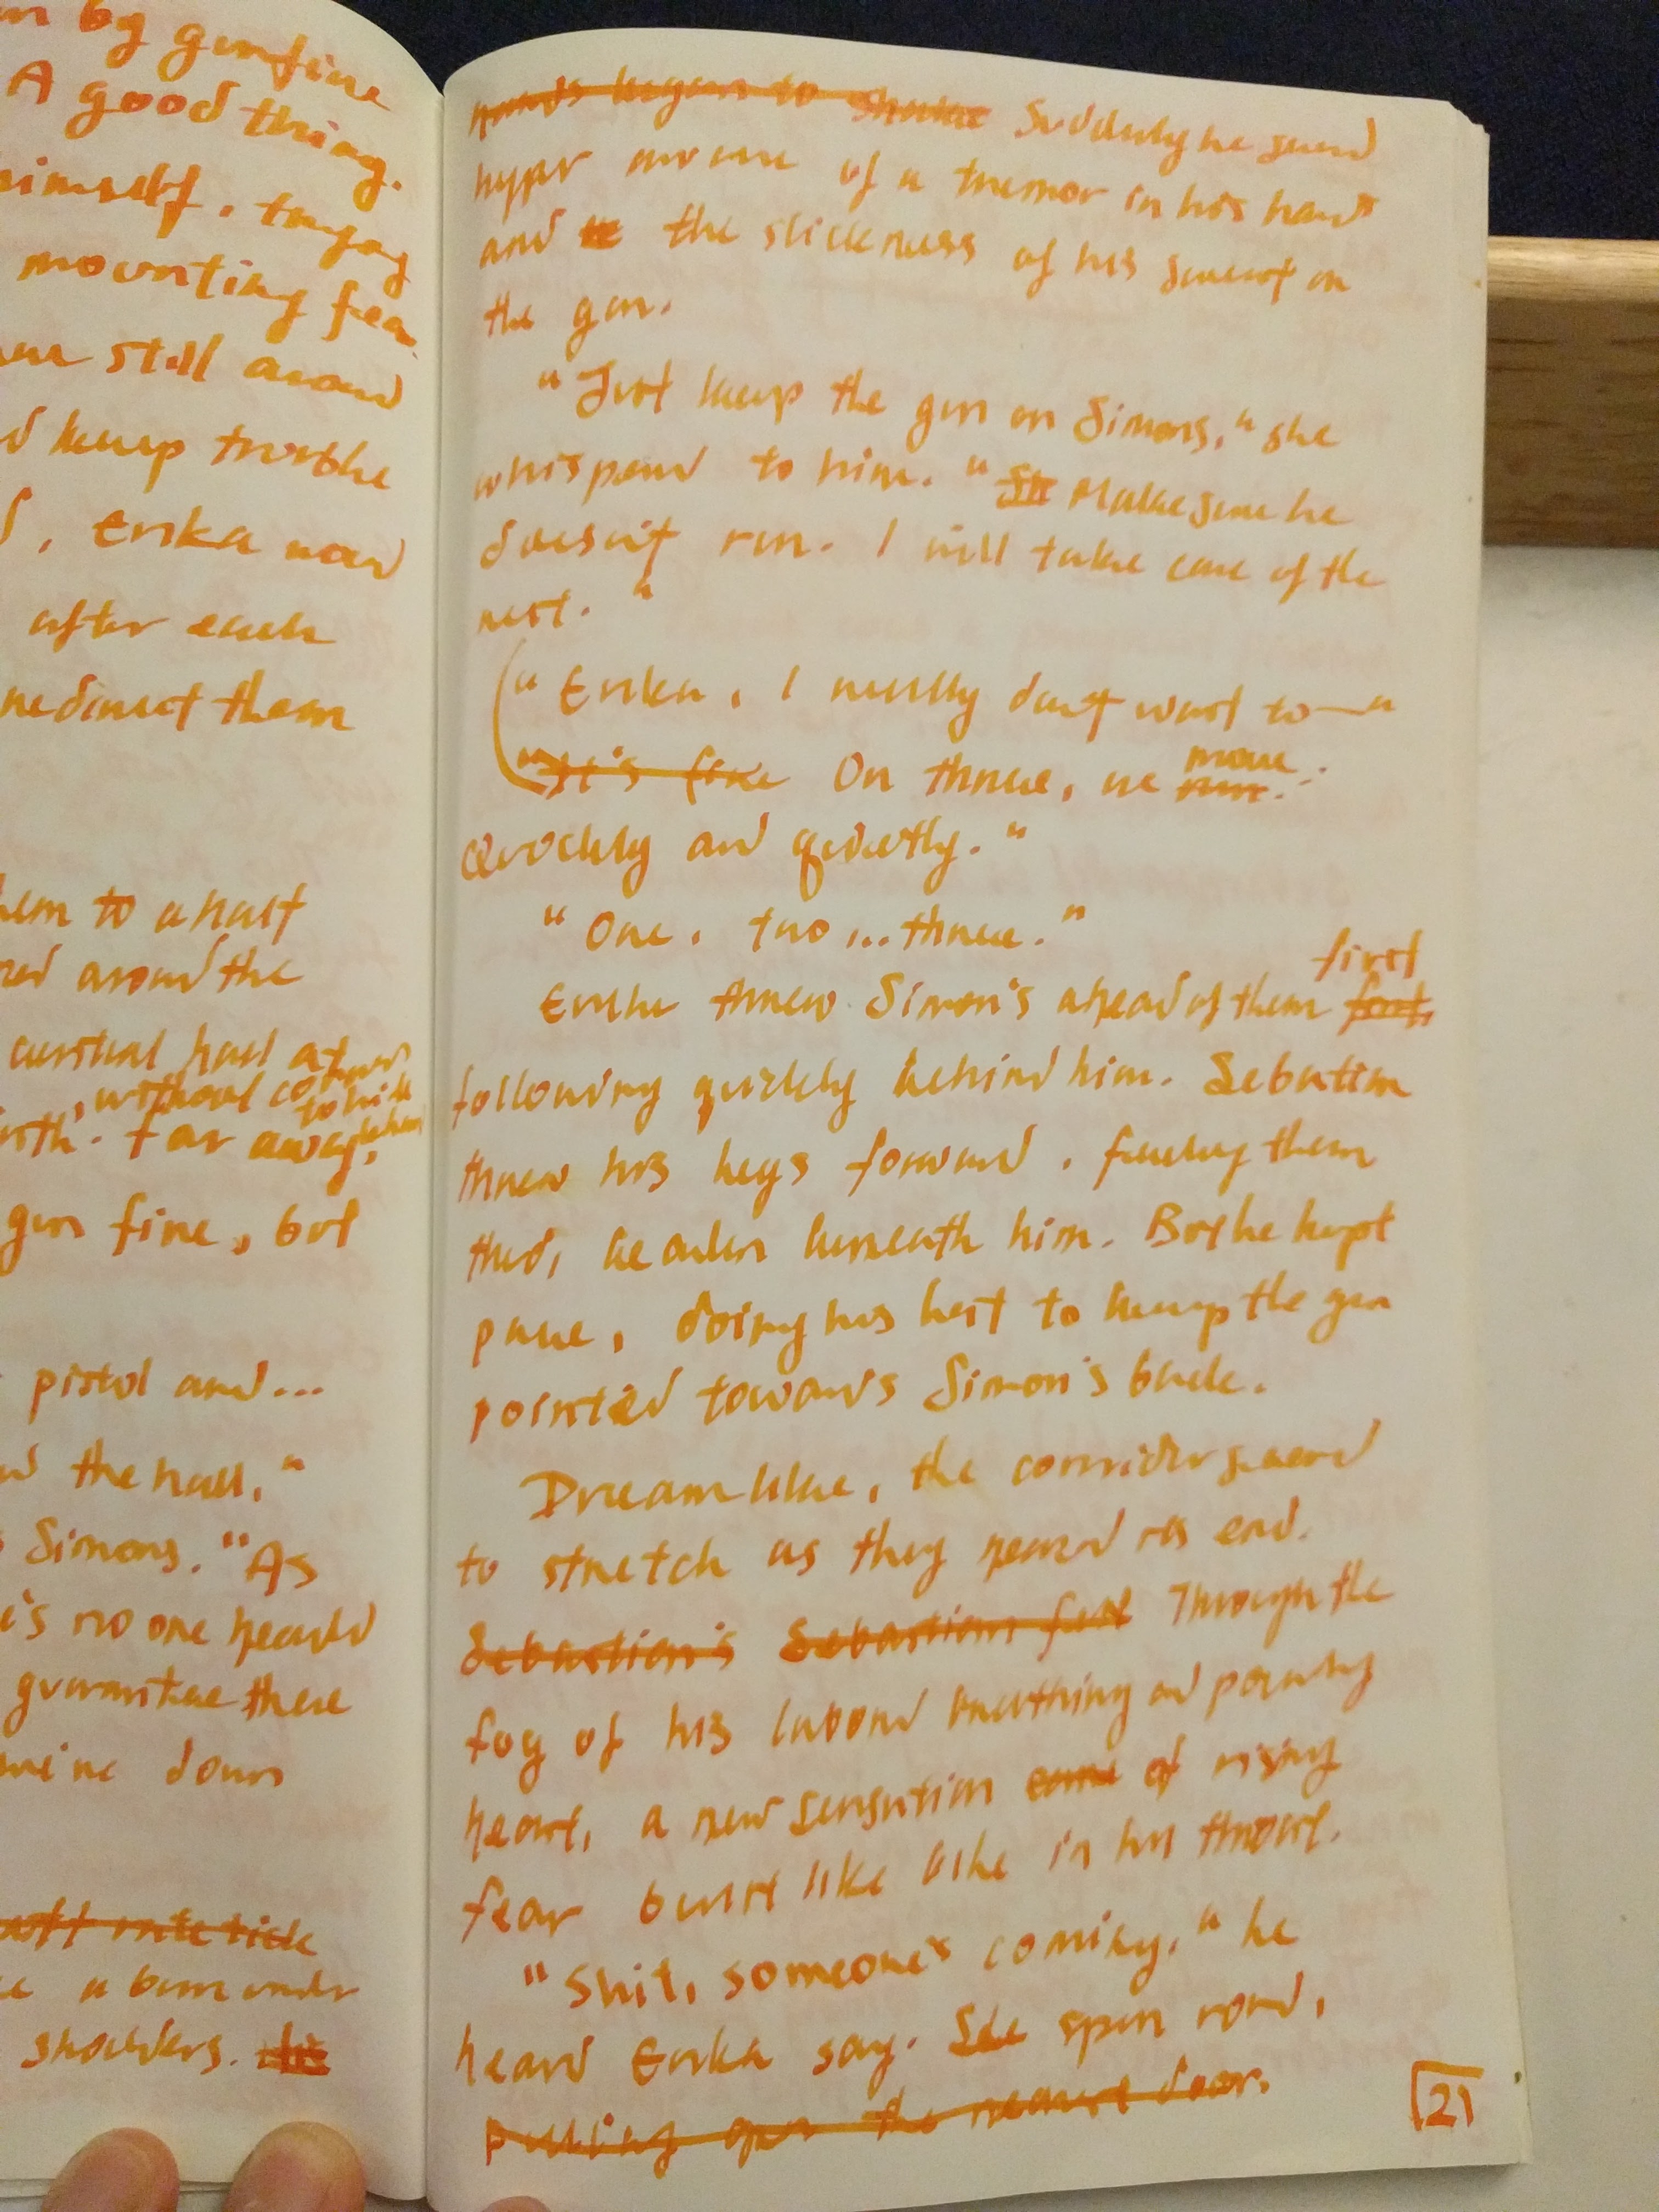 by gunfire
A good thing.
himself, trying
mounting fea
still around
keep trouble
, Erika
after each
redirect them
them to a halt
around the
central hall
, without cover
to hide
Far away,
gun fire, but
pistol and...
the hall."
Simons. "As
no one heard
guarantee there
down
a burn under
shoulders. his
hands began to shake Suddenly he seemed
hyper aware of a tremor in his hands
and te the slickness of his sweat on
the gun.
"Just keep the gun on Simons," she
whispered to him. "Make sure he
doesn't run. I will take care of the
rest."
"Erika, I really don't want to—"
"It's fine On three, we move run.
Quickly and quietly."
"One, two,... three."
first
Erika threw Simon's ahead of them
following quickly behind him. Sebastian
threw his legs forward, feeling them
beneath him. But he kept
pace, doing his best to keep the gun
pointed towards Simon's back.
Dreamlike, the corridor seemed
to stretch as they neared its end.
Sebastian's Sebastian felt Through the
fog of his labored breathing and pounding
heart, a new sensation came of rising
fear burst like bile in his throat.
"Shit, someone's coming," he
heard Erika say. She spun round,
pulling open the nearest door.
21